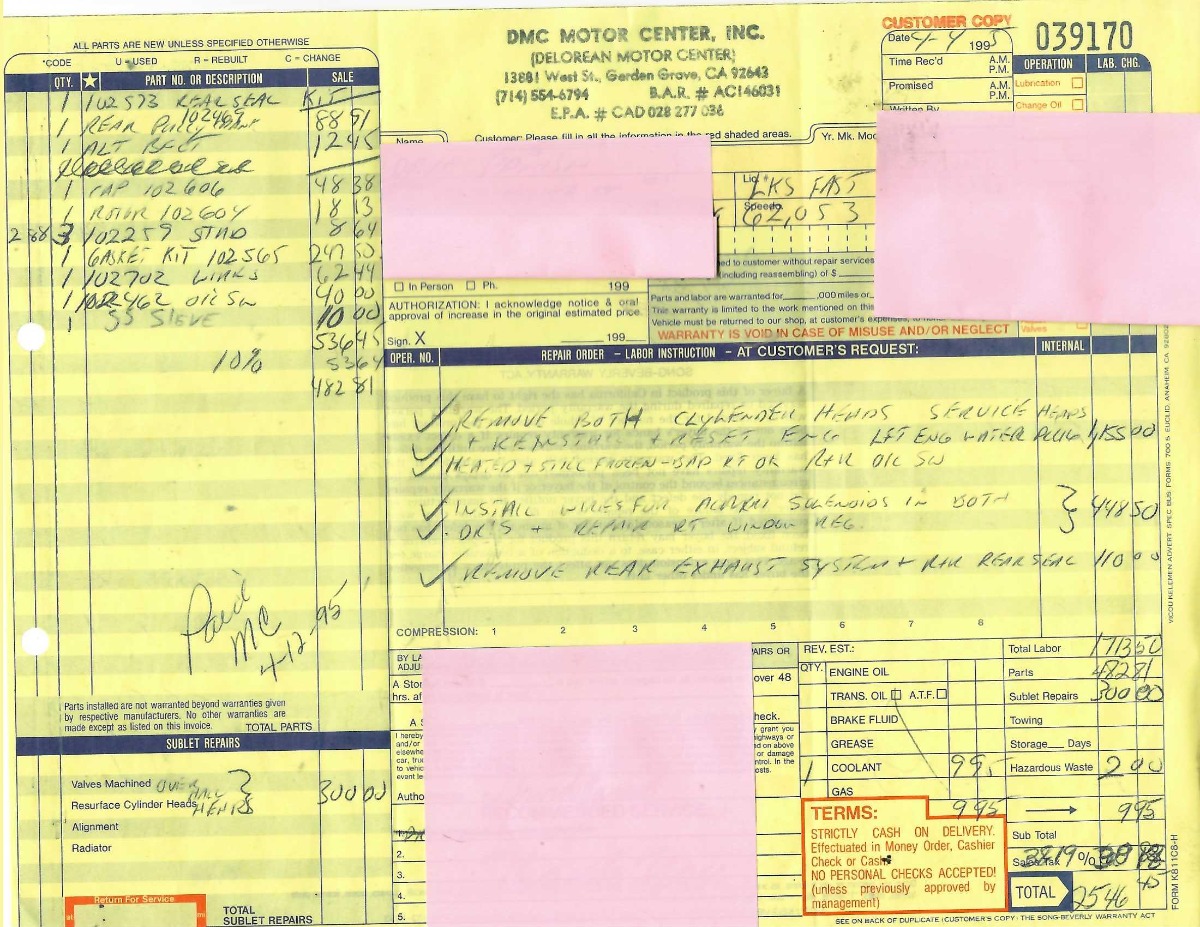 ALL PARTS ARE NEW UNLESS SPECIFIED OTHERWISE
*CODE U = USED R = REBUILT C = CHANGE
QTY. ★ PART NO. OR DESCRIPTION SALE
1 102573 REAR SEAL KIT
102469
1 REAR 88 91
1 ALT BELT 12 45
1 CAP 102606 48 38
1 ROTOR 102604 18 13
2 88 3 102259 STUD 8 64
1 GASKET KIT 102565 247 50
1 102702 62 44
1 102462 OIL SW 40 00
1 SS SLEVE 10 00
536 45
10% 53 64
482 81
Paid
MC
4-12-95
Parts installed are not warranted beyond warranties given
by respective manufacturers. No other warranties are
made except as listed on this invoice. TOTAL PARTS
SUBLET REPAIRS
Valves Machined OVER
HAUL
Resurface Cylinder Heads HEADS 300 00
Alignment
Radiator
Return For Service
at
TOTAL
SUBLET REPAIRS
DMC MOTOR CENTER, INC.
(DELOREAN MOTOR CENTER)
13881 West St., Garden Grove, CA 92643
(714) 554-6794 B.A.R. # AC146031
E.P.A. # CAD 028 277 036
Customer: Please fill in all the information in the red shaded areas.
Name
Yr. Mk. Mod
Lic. #
LKS FAST
Speedo.
62,053
CUSTOMER COPY
Date 4-4 1995
039170
Time Rec'd A.M.
P.M.
Promised A.M.
P.M.
Written By
OPERATION LAB. CHG.
Lubrication
Change Oil
Valves
ed to customer without repair services
(including reassembling) of $
In Person Ph. 199
AUTHORIZATION: I acknowledge notice & oral
approval of increase in the original estimated price.
Sign. X 199
Parts and labor are warranted for ,000 miles or
This warranty is limited to the work mentioned on this
Vehicle must be returned to our shop, at customer's expense,
WARRANTY IS VOID IN CASE OF MISUSE AND/OR NEGLECT
OPER. NO. REPAIR ORDER – LABOR INSTRUCTION – AT CUSTOMER'S REQUEST: INTERNAL
REMOVE BOTH CLYLENDER HEADS SERVICE HEADS
+ REINSTALL + RESET ENG LFT ENG WATER PLUG 1,155 00
HEATED + STILL FROZEN - BAD RT OK R+R OIL SW
INSTALL WIRES FOR SOLENOIDS IN BOTH
DR'S + REPAIR RT WINDOW REG. 448 50
REMOVE REAR EXHAUST SYSTEM + R+R REAR SEAL 110 00
COMPRESSION: 1 2 3 4 5 6 7 8
BY LA
ADJU
A Stor
hrs. af
A S
I hereby
and/or
elsewhe
car, truc
to vehic
event le
Autho
1.
2.
3.
4.
5.
PAIRS OR
over 48
heck.
y grant you
ighways or
ed on above
or damage
ontrol. In the
osts.
REV. EST.:
QTY.
ENGINE OIL
TRANS. OIL A.T.F.
BRAKE FLUID
GREASE
1 COOLANT 9 95
GAS
9 95
TERMS:
STRICTLY CASH ON DELIVERY.
Effectuated in Money Order, Cashier
Check or Cash.
NO PERSONAL CHECKS ACCEPTED!
(unless previously approved by
management)
Total Labor 1713 50
Parts 482 81
Sublet Repairs 300 00
Towing
Storage Days
Hazardous Waste 2 00
9 95
Sub Total
Sales Tax %
TOTAL 2546 45
SEE ON BACK OF DUPLICATE (CUSTOMER'S COPY) THE SONG-BEVERLY WARRANTY ACT
FORM K811C8-H